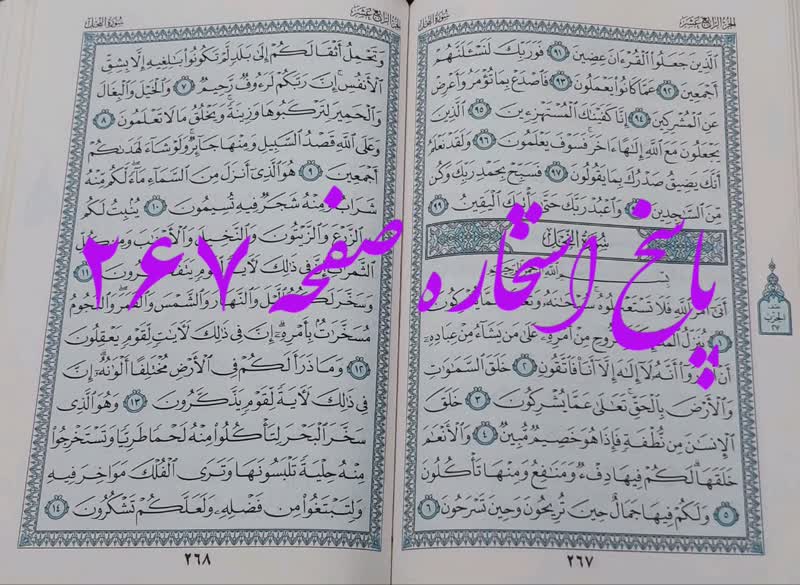 الجزء الرابع عشر
سورة النحل
الَّذِينَ جَعَلُوا الْقُرْءَانَ عِضِينَ ٩١ فَوَرَبِّكَ لَنَسْـَٔلَنَّهُمْ
أَجْمَعِينَ ٩٢ عَمَّا كَانُوا يَعْمَلُونَ ٩٣ فَاصْدَعْ بِمَا تُؤْمَرُ وَأَعْرِضْ
عَنِ الْمُشْرِكِينَ ٩٤ إِنَّا كَفَيْنَاكَ الْمُسْتَهْزِءِينَ ٩٥ الَّذِينَ
يَجْعَلُونَ مَعَ اللَّهِ إِلَٰهًا ءَاخَرَ فَسَوْفَ يَعْلَمُونَ ٩٦ وَلَقَدْ نَعْلَمُ
أَنَّكَ يَضِيقُ صَدْرُكَ بِمَا يَقُولُونَ ٩٧ فَسَبِّحْ بِحَمْدِ رَبِّكَ وَكُنْ
مِنَ السَّاجِدِينَ وَاعْبُدْ رَبَّكَ حَتَّىٰ يَأْتِيَكَ الْيَقِينُ ٩٩
سورة النحل
بسم الله الرحمن الرحيم
أَتَىٰ أَمْرُ اللَّهِ فَلَا تَسْتَعْجِلُوهُ سُبْحَانَهُ عَمَّا يُشْرِكُونَ
١ يُنَزِّلُ بِالرُّوحِ مِنْ أَمْرِهِ عَلَىٰ مَنْ يَشَاءُ مِنْ عِبَادِهِ
أَنْ أَنْذِرُوا أَنَّهُ لَا إِلَٰهَ إِلَّا أَنَا فَاتَّقُونِ ٢ خَلَقَ السَّمَاوَاتِ
وَالْأَرْضَ بِالْحَقِّ تَعَالَىٰ عَمَّا يُشْرِكُونَ ٣ خَلَقَ
الْإِنْسَانَ مِنْ نُطْفَةٍ فَإِذَا هُوَ خَصِيمٌ مُبِينٌ ٤ وَالْأَنْعَامَ
خَلَقَهَا لَكُمْ فِيهَا دِفْءٌ وَمَنَافِعُ وَمِنْهَا تَأْكُلُونَ
٥ وَلَكُمْ فِيهَا جَمَالٌ حِينَ تُرِيحُونَ وَحِينَ تَسْرَحُونَ ٦
٢٦٧
الحزب
٢٧
پاسخ استخاره صفحه ۲۶۷
الجزء الرابع عشر
سورة النحل
وَتَحْمِلُ أَثْقَالَكُمْ إِلَىٰ بَلَدٍ لَمْ تَكُونُوا بَالِغِيهِ إِلَّا بِشِقِّ
الْأَنْفُسِ إِنَّ رَبَّكُمْ لَرَءُوفٌ رَحِيمٌ ٧ وَالْخَيْلَ وَالْبِغَالَ
وَالْحَمِيرَ لِتَرْكَبُوهَا وَزِينَةً وَيَخْلُقُ مَا لَا تَعْلَمُونَ ٨
وَعَلَى اللَّهِ قَصْدُ السَّبِيلِ وَمِنْهَا جَائِرٌ وَلَوْ شَاءَ لَهَدَاكُمْ
أَجْمَعِينَ ٩ هُوَ الَّذِي أَنْزَلَ مِنَ السَّمَاءِ مَاءً لَكُمْ مِنْهُ
شَرَابٌ وَمِنْهُ شَجَرٌ فِيهِ تُسِيمُونَ ١٠ يُنْبِتُ لَكُمْ
بِهِ الزَّرْعَ وَالزَّيْتُونَ وَالنَّخِيلَ وَالْأَعْنَابَ وَمِنْ كُلِّ
الثَّمَرَاتِ إِنَّ فِي ذَٰلِكَ لَآيَةً لِقَوْمٍ يَتَفَكَّرُونَ ١١
وَسَخَّرَ لَكُمُ اللَّيْلَ وَالنَّهَارَ وَالشَّمْسَ وَالْقَمَرَ وَالنُّجُومُ
مُسَخَّرَاتٌ بِأَمْرِهِ إِنَّ فِي ذَٰلِكَ لَآيَاتٍ لِقَوْمٍ يَعْقِلُونَ
١٢ وَمَا ذَرَأَ لَكُمْ فِي الْأَرْضِ مُخْتَلِفًا أَلْوَانُهُ إِنَّ
فِي ذَٰلِكَ لَآيَةً لِقَوْمٍ يَذَّكَّرُونَ ١٣ وَهُوَ الَّذِي
سَخَّرَ الْبَحْرَ لِتَأْكُلُوا مِنْهُ لَحْمًا طَرِيًّا وَتَسْتَخْرِجُوا
مِنْهُ حِلْيَةً تَلْبَسُونَهَا وَتَرَى الْفُلْكَ مَوَاخِرَ فِيهِ
وَلِتَبْتَغُوا مِنْ فَضْلِهِ وَلَعَلَّكُمْ تَشْكُرُونَ ١٤
٢٦٨